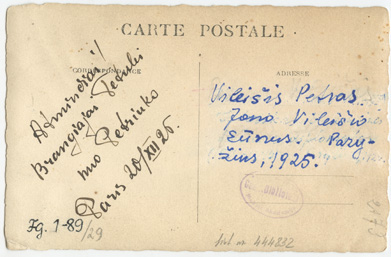 CARTE POSTALE
CORRESPONDANCE
ADRESSE
Atminčiai!
Brangiajai Tetulei
nuo Petriuko
Paris 20/XII 25.
Vileišis Petras.
Jono Vileišio
sūnus. Pary-
žius, 1925.
Fg. 1-89
/29
444832